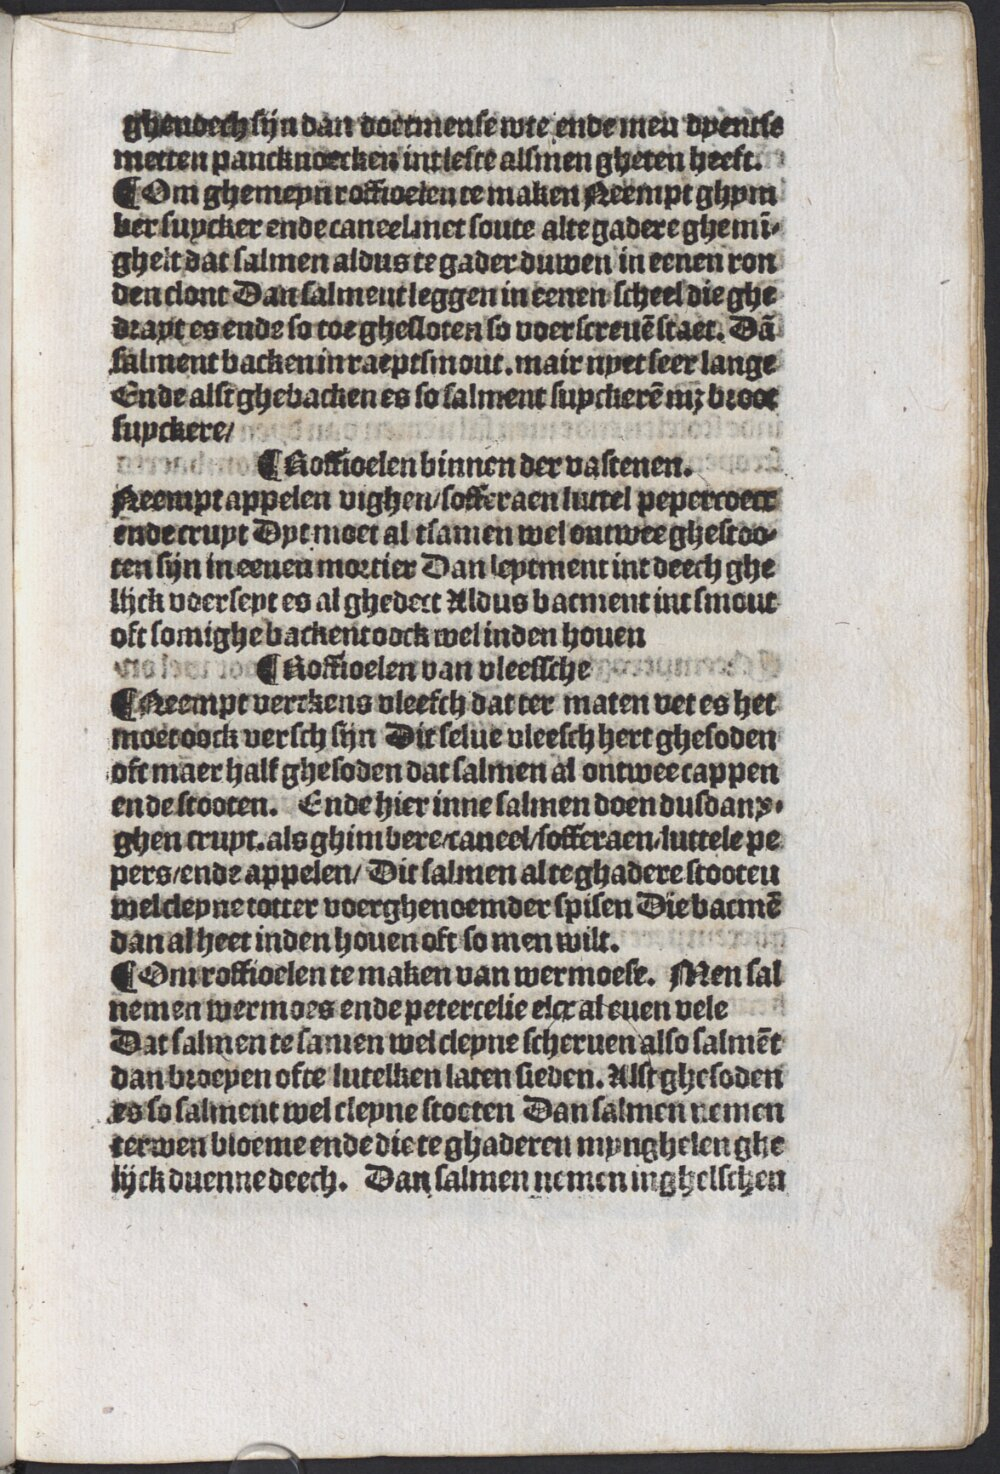 ghenoech sijn dan doetmense wte ende men dyentse
metten panckoecken int leste alsmen gheten heeft.
¶ Om ghemeyn roffioelen te maken Neempt ghym
ber suycker ende caneel met soute alte gadere ghemī-
ghelt dat salmen aldus te gader duwen in eenen ron
den clont Dan salment leggen in eenen scheel die ghe
drayt es ende so toe ghesloten so voerscreuē staet. Dā
salment backen in raeptsmout. mair nyet seer lange
Ende alst ghebacken es so salment suyckerē mȝ broot
suyckere/
¶ Roffioelen binnen der vastenen.
Neempt appelen vighen/sofferaen luttel peper coect
ende cruyt Dyt moet al tsamen wel ontwee ghestoo-
ten sijn in eenen mortier Dan leytment int deech ghe
lijck voerseyt es al ghedect Aldus bacment int smout
oft somighe backent oock wel inden houen
¶ Roffioelen van vleessche
¶ Neempt verckens vleesch dat ter maten vet es het
moet oock versch sijn Dit selue vleesch hert ghesoden
oft maer half ghesoden dat salmen al ontwee cappen
ende stooten. Ende hier inne salmen doen dusdany-
ghen cruyt. als ghimbere/caneel/sofferaen/luttele pe
pers/ende appelen/ Dit salmen alte ghadere stooten
wel cleyne totter voerghenoemder spisen Die bacmē
dan al heet inden houen oft so men wilt.
¶ Om roffioelen te maken van wermoese. Men sal
nemen wermoes ende petercelie elcx al euen vele
Dat salmen te samen wel cleyne scheruen also salmēt
dan broeyen ofte lutelken laten sieden. Alst ghesoden
es so salment wel cleyne stooten Dan salmen nemen
terwen bloeme ende die te ghaderen mynghelen ghe
lijck duenne deech. Dan salmen nemen inghelschen